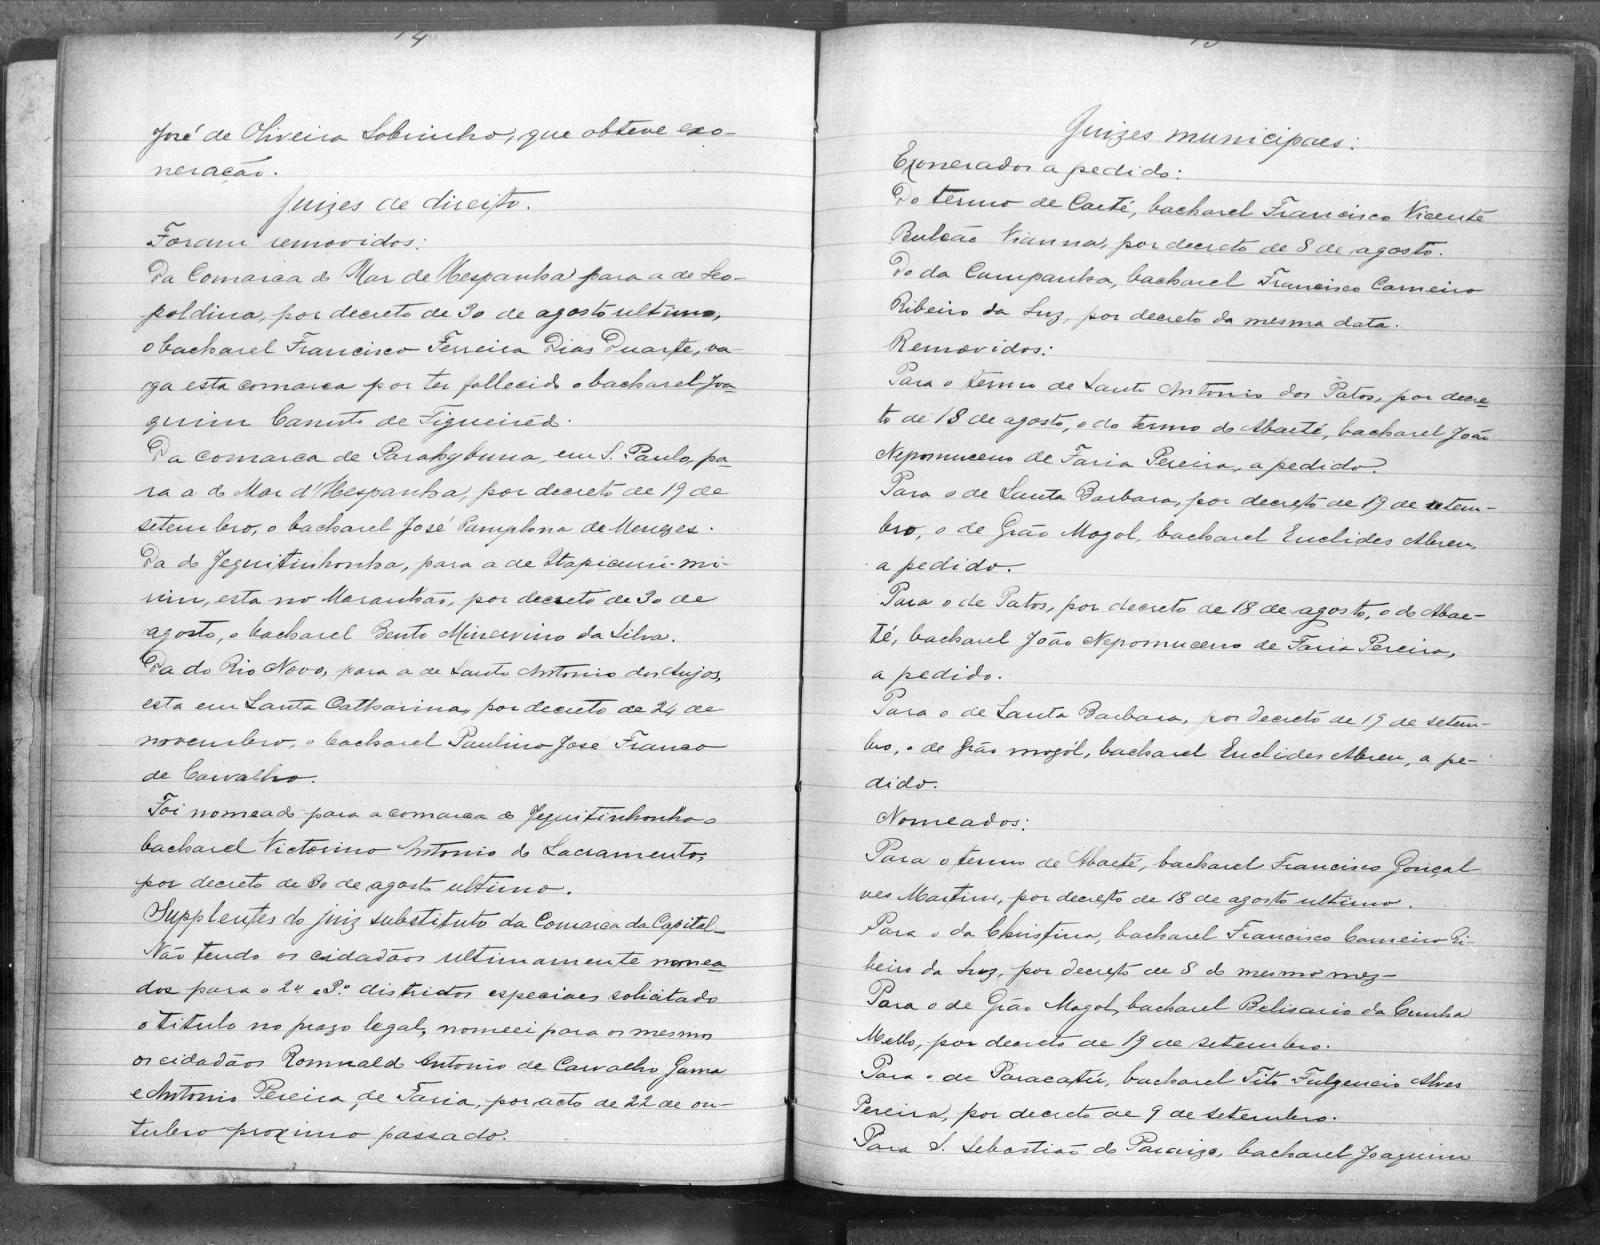 14
José de Oliveira Sobrinho, que obteve exo-
neração.
Juizes de direito.
Foram removidos:
Da Comarca do Mar de Hespanha para a de Leo-
poldina, por decreto de 30 de agosto ultimo,
o bacharel Francisco Ferreira Dias Duarte, va-
ga esta comarca por ter fallecido o bacharel Joa-
quim Canuto de Figueiredo.
Da comarca de Parahybuna, em S. Paulo, pa-
ra a do Mar d'Hespanha, por decreto de 19 de
setembro, o bacharel José Pamplona de Menezes.
Da do Jequitinhonha, para a de Itapicurú-mi-
rim, esta no Maranhão, por decreto de 30 de
agosto, o bacharel Bento Minervino da Silva.
Da do Rio Novo, para a de Santo Antonio dos Anjos,
esta em Santa Catharina, por decreto de 24 de
novembro, o bacharel Paulino José Franco
de Carvalho.
Foi nomeado para a comarca do Jequitinhonha o
bacharel Victorino Antonio do Sacramento,
por decreto de 30 de agosto ultimo.
Supplentes do juiz substituto da Comarca da Capital_
Não tendo os cidadãos ultimamente nomea-
dos para o 2º e 3º districtos especiaes solicitado
o titulo no prazo legal, nomeei para os mesmos
os cidadãos Romualdo Antonio de Carvalho Gama
e Antonio Pereira de Faria, por acto de 22 de ou-
tubro proximo passado.
15
Juizes municipaes:
Exonerados a pedido:
Do termo de Caeté, bacharel Francisco Vicente
Bulcão Vianna, por decreto de 8 de agosto.
Do da Campanha, bacharel Francisco Carneiro
Ribeiro da Luz, por decreto da mesma data.
Removidos:
Para o termo de Santo Antonio dos Patos, por decre-
to de 18 de agosto, o do termo do Abaeté, bacharel João
Nepomuceno de Faria Pereira, a pedido.
Para o de Santa Barbara, por decreto de 19 de setem-
bro, o de Grão Mogol, bacharel Euclides Abreu,
a pedido.
Para o de Patos, por decreto de 18 de agosto, o do Abae-
té, bacharel João Nepomuceno de Faria Pereira,
a pedido.
Para o de Santa Barbara, por decreto de 19 de setem-
bro, o de Grão mogól, bacharel Euclides Abreu, a pe-
dido.
Nomeados:
Para o termo de Abaeté, bacharel Francisco Gonçal
ves Martins, por decreto de 18 de agosto ultimo.
Para o da Christina, bacharel Francisco Carneiro Ri-
beiro da Luz, por decreto de 8 do mesmo mez_
Para o de Grão Mogol, bacharel Belisario da Cunha
Mello, por decreto de 19 de setembro.
Para o de Paracatú, bacharel Tito Fulgencio Alves
Pereira, por decreto de 9 de setembro.
Para S. Sebastião do Paraizo, bacharel Joaquim